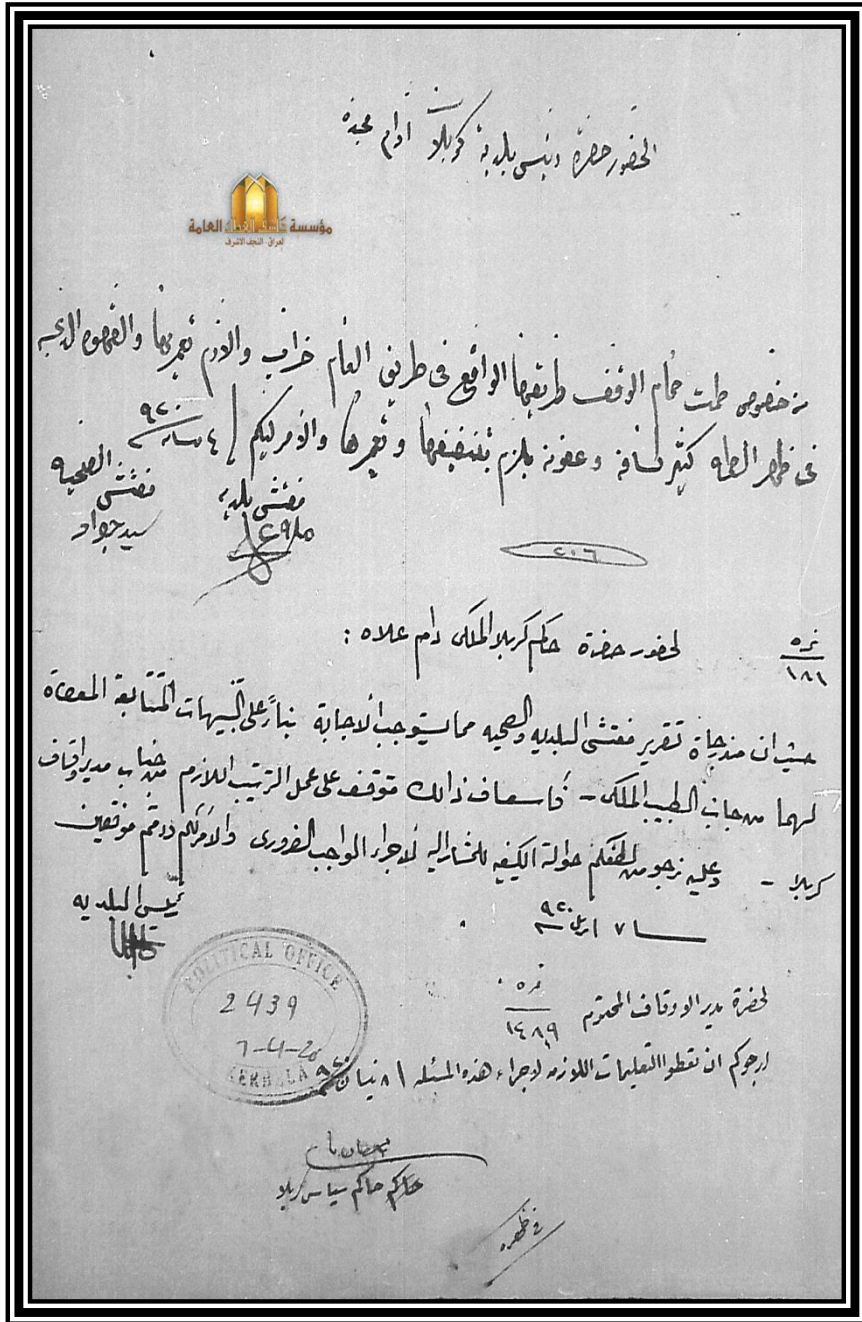 لحضور حضرة رئيس بلدية كربلا دام مجده
مؤسسة كاشف الغطاء العامة
العراق - النجف الاشرف
من خصوص طمت حمام الوقف طريقها الواقع في طريق العام خراب والازم تعمرها والقهوه الذيه
في ظهر الطمه كثير كسافه وعفونه يلزم بتنضيفها وتعمرها والأمر ليكم ٤ نيسان ٩٢٠
مفتش بلديه
مفتش الصحيه
سيد جواد
٢٠٦
نمره
١٨١
لحضور حضرة حاكم كربلا الملكي دام علاه :
حيث ان مندرجاة تقرير مفتشي البلديه والصحيه مما يستوجب الاجابة بناءً على التنبيهات المتتابعة المعطاة
لهما من جانب الطبيب الملكي - فاسعاف ذالك متوقف على عمل الترتيب اللازم من جناب مدير اوقاف
كربلا - وعليه نرجو من لطفكم حوالة الكيفيه للمشار اليه لاجراء الواجب الضروري والامر لكم ودمتم موفقين
٧ ابريل ٩٢٠
رئيس البلديه
POLITICAL OFFICE
2439
7-4-20
KERBALA
لحضرة مدير الاوقاف المحترم
نمره
١٤٨٩
ارجوكم ان تعطوا التعليمات اللازمه لاجراء هذه المسئله ٨ نيسان ٩٢٠
حاكم سياسي كربلا
في ظهره